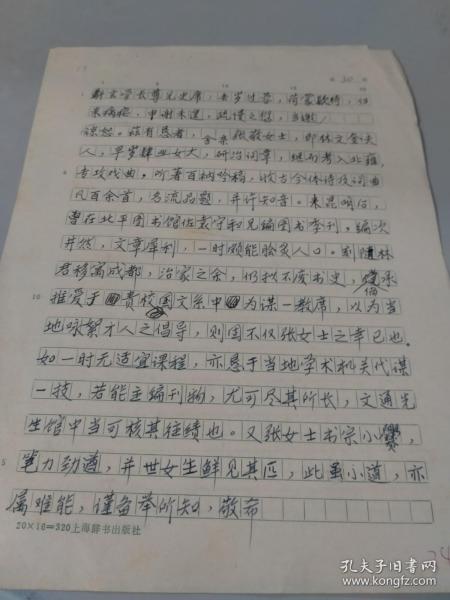 30
献玄学长尊兄史席,去岁过蓉,荷蒙款待,归
来病痊,申谢未遑,疏慢之愆,当邀
谅恕。兹有恳者,舍亲张敬女士,即林文奎夫
人,早岁肄业女大,研治词章,继而考入北雍,
专攻戏曲。所著百衲吟稿,收古今体诗及词曲
凡百余首,名流品题,并许知音。来昆明后,
曾在北平图书馆佐袁守和兄编图书季刊,编次
井然,文章犀利,一时颇能脍炙人口。刻随林
君移寓成都,治家之余,仍拟不废书史,倘承
推爱于贵校国文系中为谋一教席,以为当
地咏絮才人之倡导,则固不仅张女士之幸已也。
如一时无适宜课程,亦恳于当地学术机关代谋
一技,若能主编刊物,尤可尽其所长,文通先
生馆中当可核其往绩也。又张女士书宗小爨,
笔力劲遒,并世女生鲜见其匹,此虽小道,亦
属难能,谨备举所知,敬希
20×16=320上海辞书出版社
孔夫子旧书网
www.kongfz.com